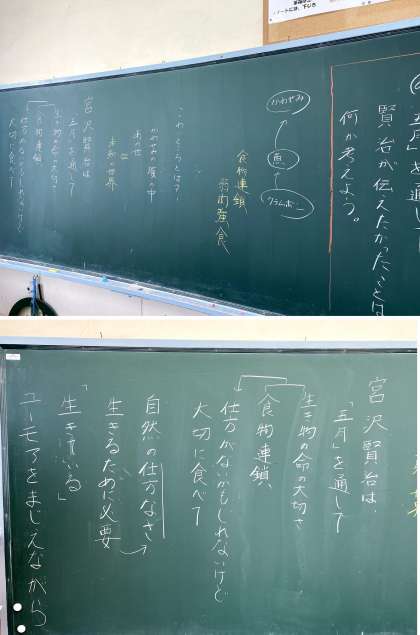 ノートには、下むき
「五月」を通して
賢治が伝えたかったことは
何か考えよう。
かわせみ
魚
クラムボン
食物連鎖
弱肉強食
こわいところとは？
かわせみの腹の中
あの世
＝
未知の世界
宮沢賢治は
五月を通して
生き物の命の大切さ
食物連鎖
仕方がないかもしれないけど
大切に食べて
宮沢賢治は
「五月」を通して
生き物の命の大切さ
食物連鎖
仕方がないかもしれないけど
大切に食べて
自然の仕方なさ
生きるために必要
「生きている」
ユーモアをまじえながら